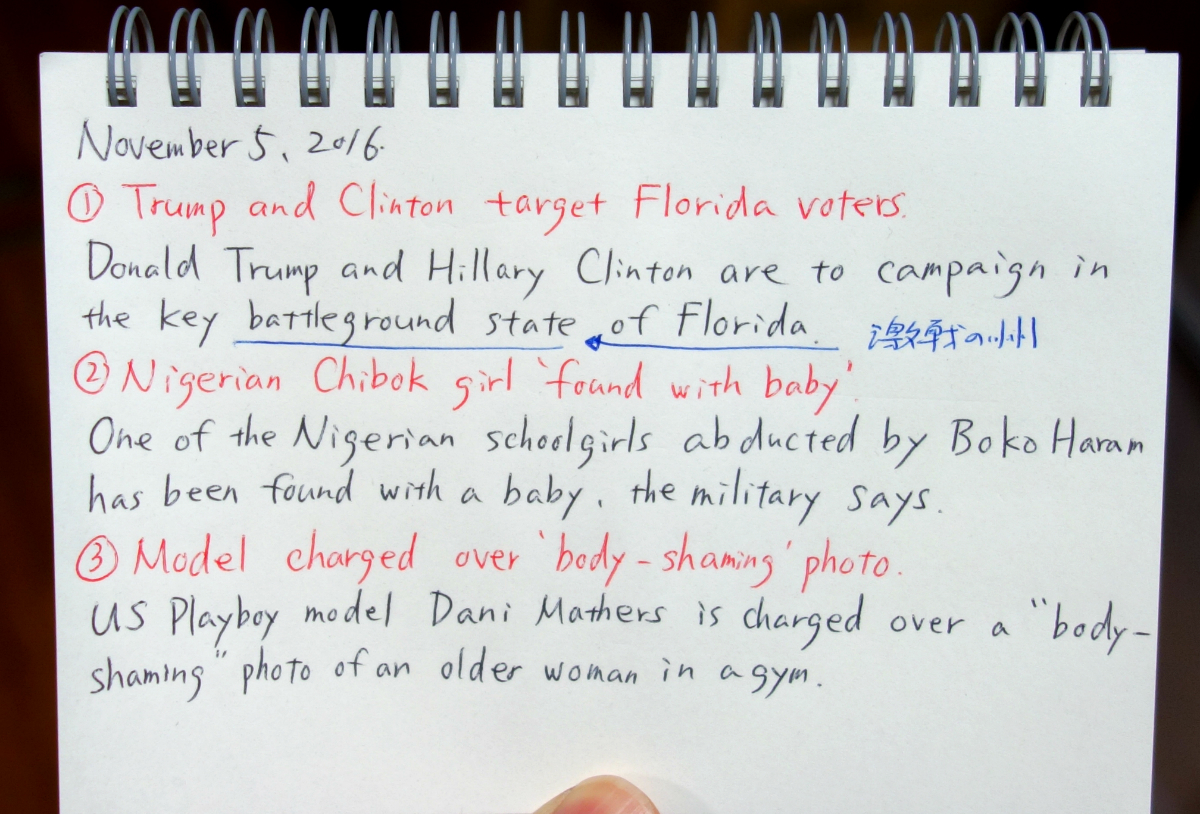 November 5, 2016.
① Trump and Clinton target Florida voters.
Donald Trump and Hillary Clinton are to campaign in
the key battleground state of Florida. 激戦の州
② Nigerian Chibok girl 'found with baby'.
One of the Nigerian schoolgirls abducted by Boko Haram
has been found with a baby, the military says.
③ Model charged over 'body-shaming' photo.
US Playboy model Dani Mathers is charged over a "body-
shaming" photo of an older woman in a gym.